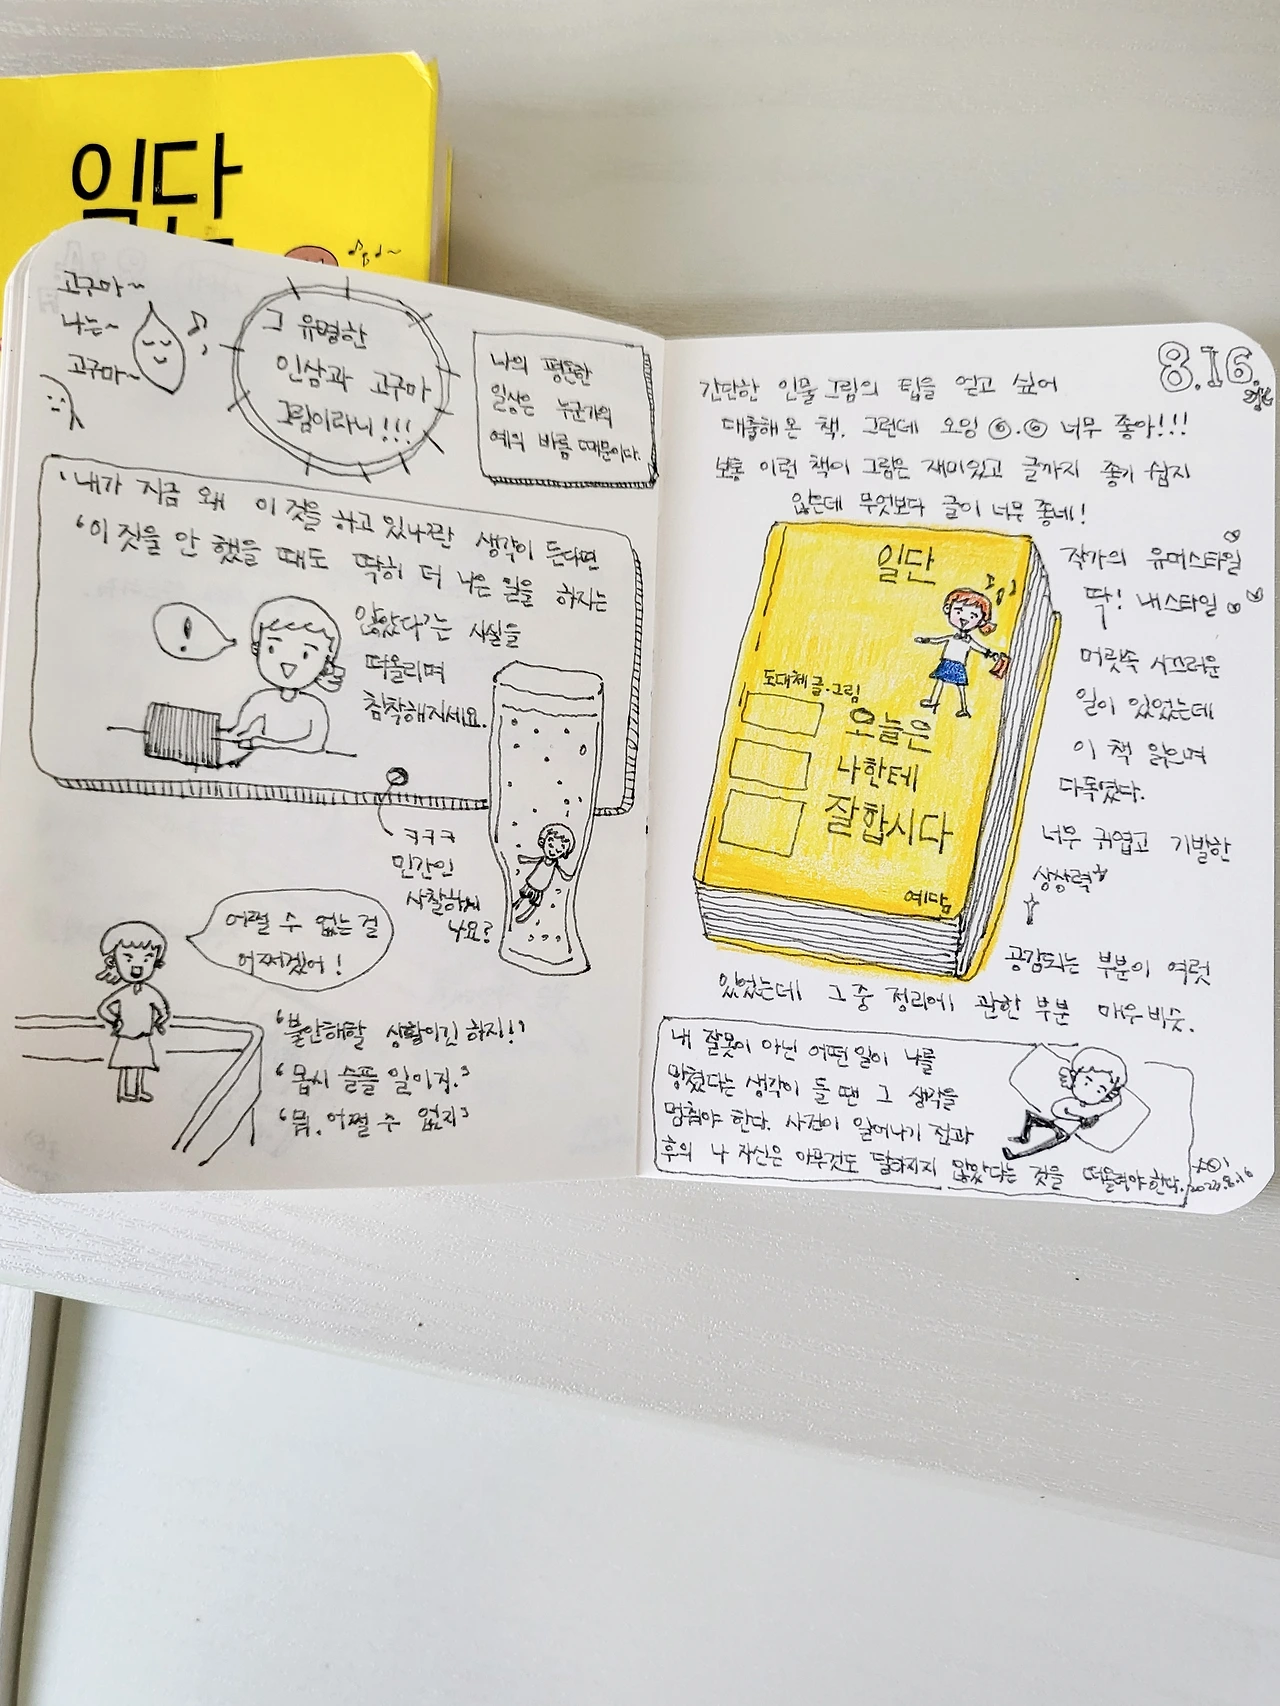 일단
고구마~
나는~
고구마~
그 유명한
인삼과 고구마
그림이라니!!!
나의 평온한
일상은 누군가의
예의 바름 때문이다.
'내가 지금 왜 이 것을 하고 있나'란 생각이 든다면
'이 짓을 안 했을 때도 딱히 더 나은 일을 하지는
않았다'는 사실을
떠올리며
침착해지세요.
!
ㅋㅋㅋ
민간인
사찰하시
나요?
어쩔 수 없는 걸
어쩌겠어!
'불안해할 상황이긴 하지!'
'몹시 슬플 일이지.'
'뭐, 어쩔 수 없지'
8.16.
간단한 인물 그림의 팁을 얻고 싶어
대출해 온 책. 그런데 오잉 ⊙.⊙ 너무 좋아!!!
보통 이런 책이 그림은 재미있고 글까지 좋기 쉽지
않은데 무엇보다 글이 너무 좋네!
일단
도대체 글·그림
오늘은
나한테
잘합시다
예담
작가의 유머스타일
딱! 내스타일
머릿속 시끄러운
일이 있었는데
이 책 읽으며
다독였다.
너무 귀엽고 기발한
상상력
공감되는 부분이 여럿
있었는데 그 중 정리에 관한 부분 매우 비슷.
내 잘못이 아닌 어떤 일이 나를
망쳤다는 생각이 들 땐 그 생각을
멈춰야 한다. 사건이 일어나기 전과
후의 나 자신은 아무것도 달라지지 않았다는 것을 떠올려야 한다.
2023.8.16